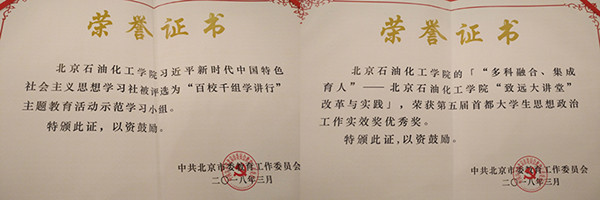 荣誉证书
北京石油化工学院习近平新时代中国特色
社会主义思想学习社被评选为“百校千组学讲行”
主题教育活动示范学习小组。
特颁此证,以资鼓励。
中共北京市委教育工作委员会
二〇一八年三月
荣誉证书
北京石油化工学院的「“多科融合、集成
育人”——北京石油化工学院“致远大讲堂”
改革与实践」,荣获第五届首都大学生思想政治
工作实效奖优秀奖。
特颁此证,以资鼓励。
中共北京市委教育工作委员会
二〇一八年三月